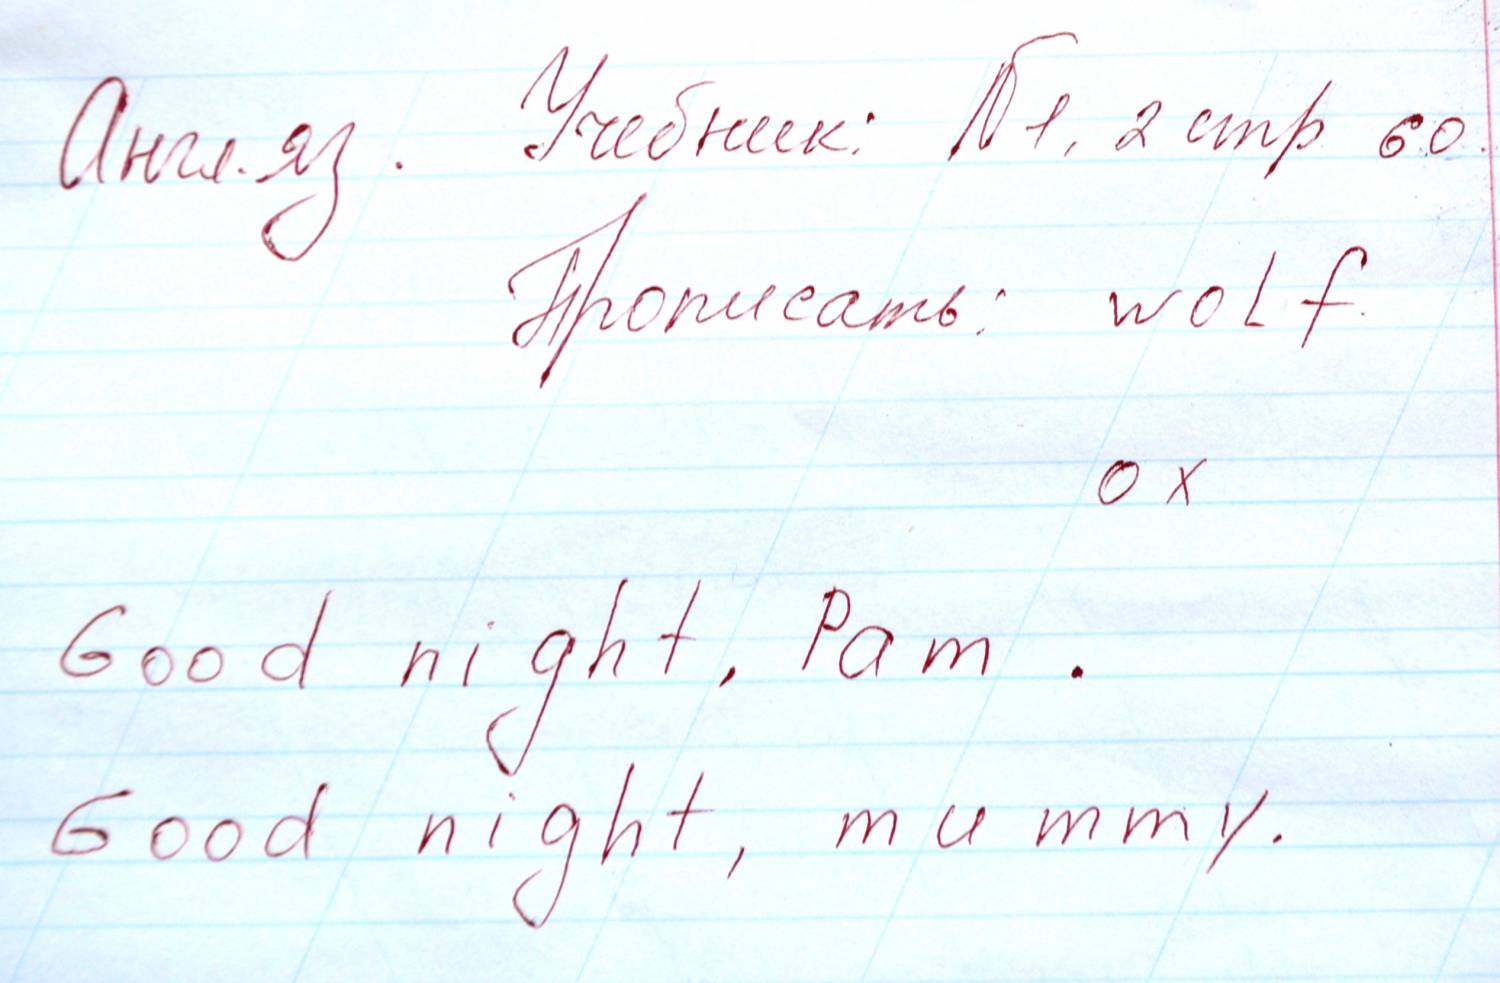 Англ. яз. Учебник: №1, 2 стр 60.
Прописать: wolf.
ox
Good night, Pam.
Good night, mummy.